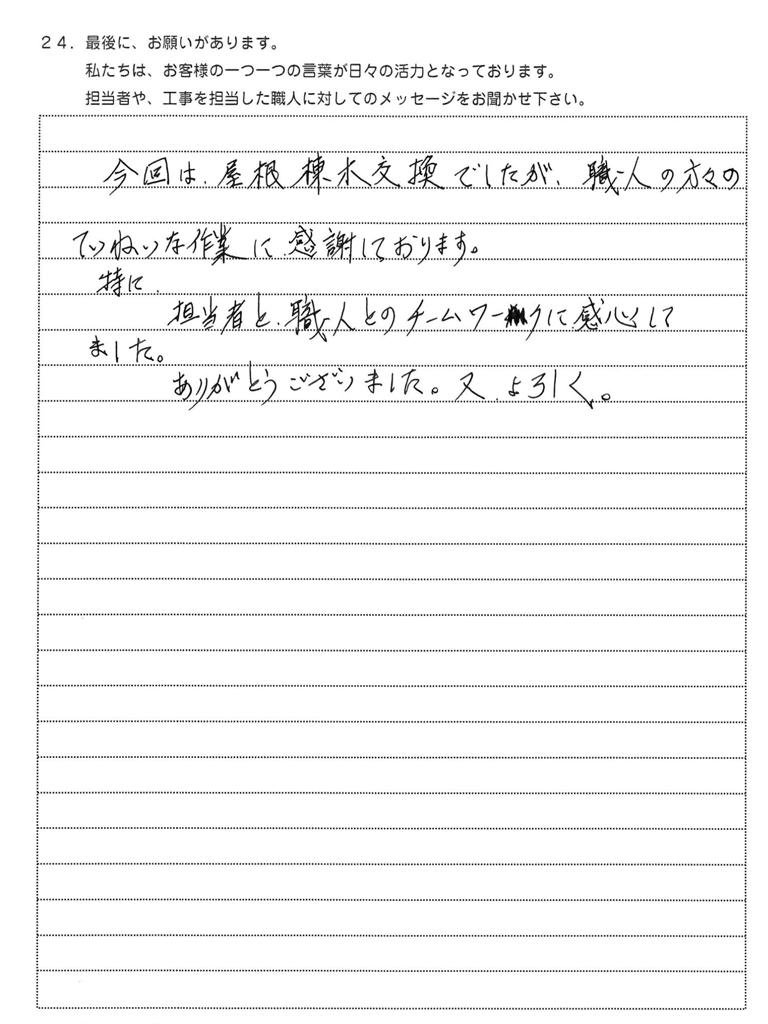 24．最後に、お願いがあります。
私たちは、お客様の一つ一つの言葉が日々の活力となっております。
担当者や、工事を担当した職人に対してのメッセージをお聞かせ下さい。
今回は、屋根棟木交換でしたが、職人の方々の
ていねいな作業に感謝しております。
特に、
担当者と、職人とのチームワークに感心して
ました。
ありがとうございました。又、よろしく。